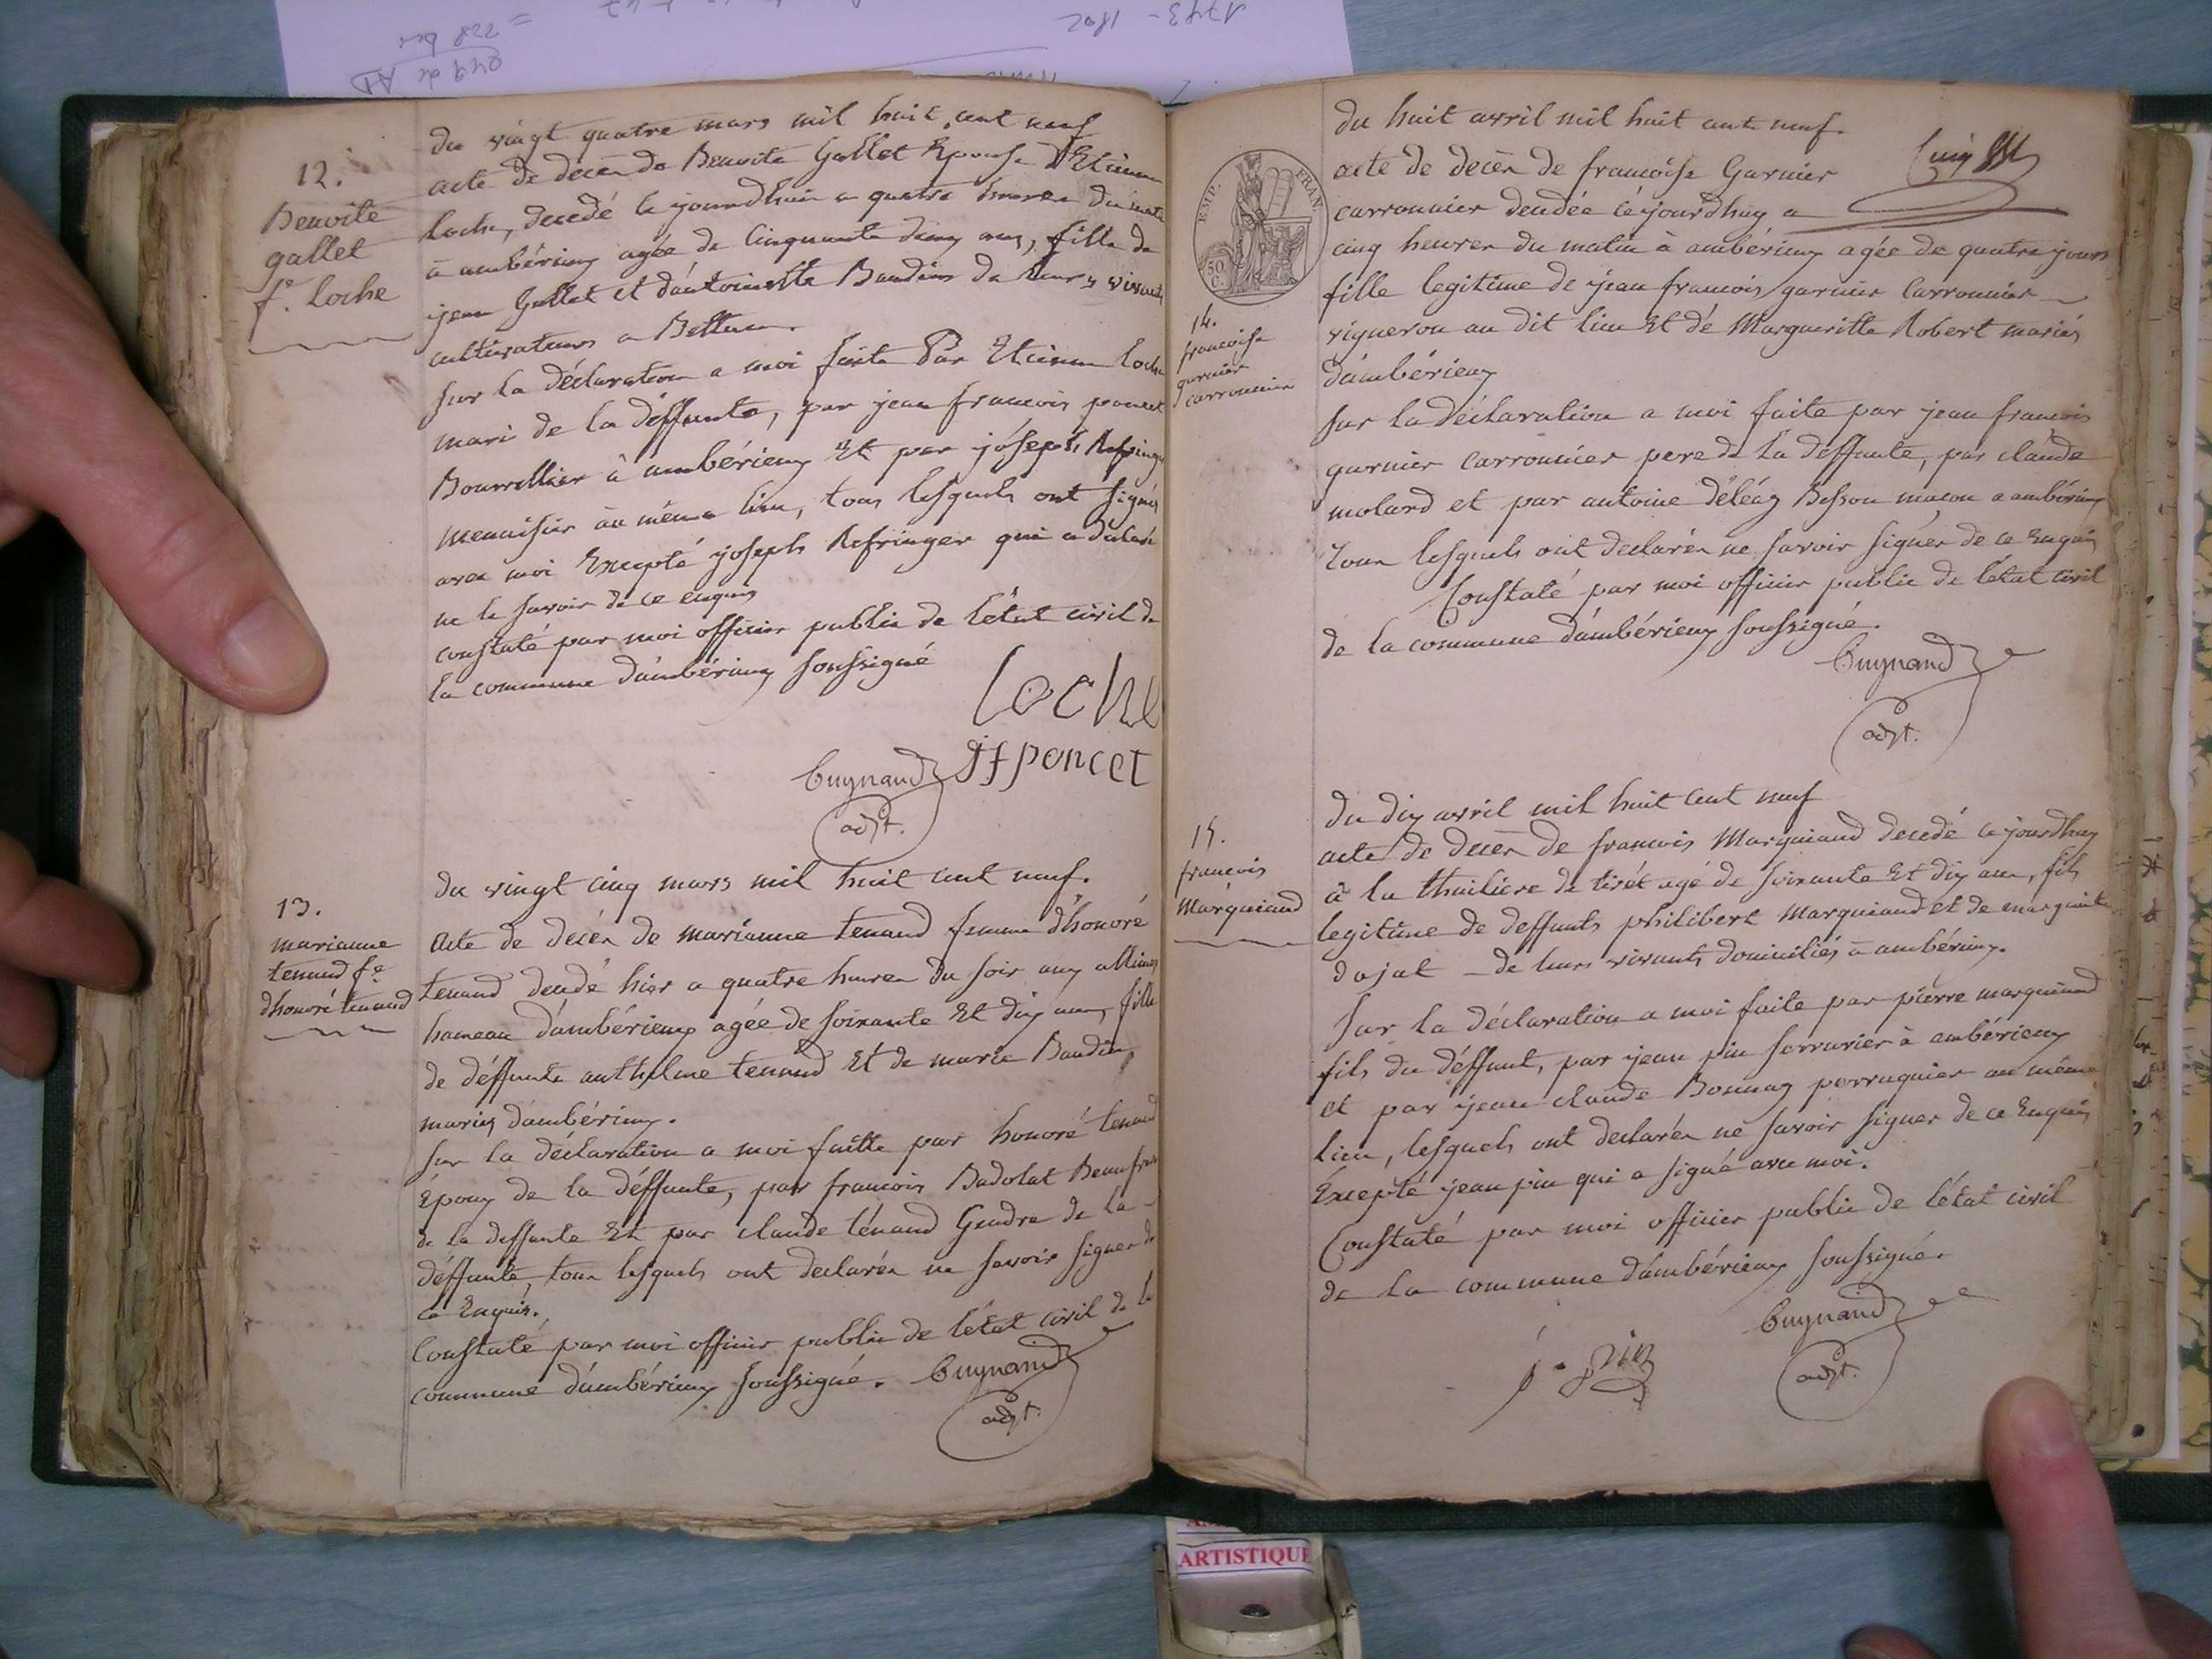 12.
Benoite
gallet
fe. Loche
du vingt quatre mars mil huit cent neuf
acte de decèn de Benoite Gallet Epouse d'Etienne
Loche, decedé ce jourdhui a quatre heures du
à ambérieux agée de Cinquante deux ans, fille de
jean Gallet et d'antoinette Baudin de leurs vivants
cultivateurs a Bettan.
sur la déclaration a moi faite Par Etienne Loche
mari de la déffunte, par jean francois poncet
Bourrellier à ambérieux Et par jóseph Refringer
menuisier au même lieu, tous lesquels ont signés
avec moi Excepté joseph Refringer qui a déclaré
ne le savoir de ce enquis
constaté par moi officier public de l'état civil de
la commune d'ambérieux soussigné
Loche
jf poncet
Cuynand
adjt.
13.
marianne
tenand fe
dhonoré tenand
du vingt cinq mars mil huit cent neuf.
acte de décèn de marianne tenand femme d'honoré
tenand decedé hier a quatre heures du soir aux allimes
hameau d'ambérieux agée de soixante Et dix ans, fille
de déffunts anthelme tenand Et de marie Baudin
mariés d'ambérieux.
sur la déclaration a moi faitte par honoré tenand
époux de la déffunte, par francois Badolat Beaufrere
de la deffunte Et par claude ténand Gendre de la
déffunte, tous lesquels ont declarés ne savoir signer de
ce Enquis.
Constaté par moi officier public de l'état civil de la
commune d'ambérieux soussigné.
Cuynand
adjt.
EMP. FRAN.
50 C.
14.
francoise
garnier
carronnier
du huit avril mil huit cent neuf.
acte de decèn de francoise Garnier
carronnier decedée cejourdhuy a
cinq heures du matin à ambérieux agée de quatre jours
fille legitime de jean francois garnier Carronnier
vigneron au dit lieu Et de Margueritte Robert mariés
d'ambérieux
sur la déclaration a moi faite par jean francois
garnier carronnier pere de la deffunte, par claude
molard et par antoine déléaz Besson macon a ambérieux
Tous lesquels ont declarés ne savoir signer de ce Enquis
Constaté par moi officier public de l'état civil
de la commune d'ambérieux soussigné.
Cuynand
adjt.
15.
francois
Marquiand
du dix avril mil huit cent neuf
acte de decèn de francois Marquiand decedé ce jourdhuy
à la thuiliere de tiret agé de soixante Et dix ans, fils
legitime de deffunts philibert Marquiand et de marguerite
dojat - de leurs vivants domiciliés à ambérieux.
Sur la déclaration a moi faite par pierre marquiand
fils du déffunt, par jean pin serrurier à ambérieux
et par jean claude Bonnaz perruquier au même
lieu, lesquels ont declarés ne savoir signer de ce Enquis
Excepté jean pin qui a signé avec moi.
Constaté par moi officier public de l'état civil
de la commune d'ambérieux soussigné.
Cuynand
adjt.
j. pin
ARTISTIQUE